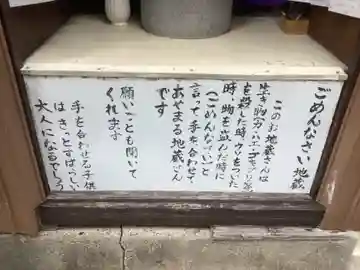 ごめんなさい地蔵
このお地蔵さんは
生き物(カ・ハエ・ゴキブリ等)
を殺した時、ウソをつた
時、物を盗んだ時に
「ごめんなさい」と
言って手を合わせて
あやまる地蔵さん
です
願いごとも聞いて
くれます
手を合わせる子供
はきっとすばらしい
大人になるでしょう